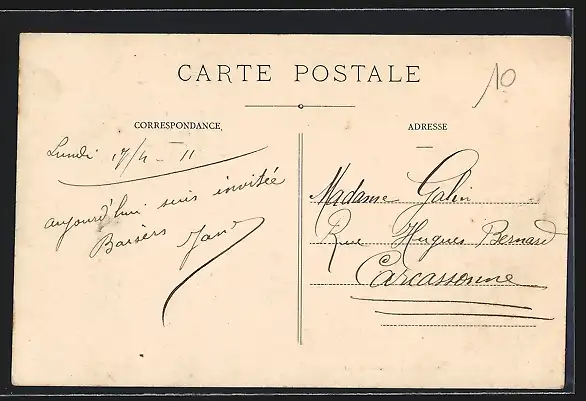 CARTE POSTALE
10
CORRESPONDANCE
Lundi 17/4 - 11
aujourd'hui suis invitée
Baisers
ADRESSE
Madame Galin
Rue Hugues Bernard
Carcassonne